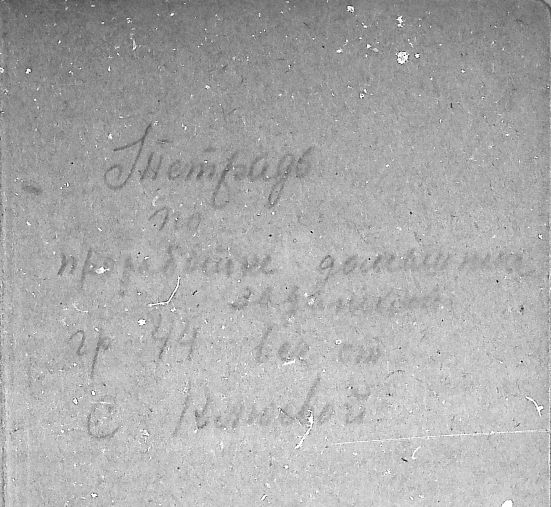 Тетрадь
по
проработке домашних
заданий
гр 44
С